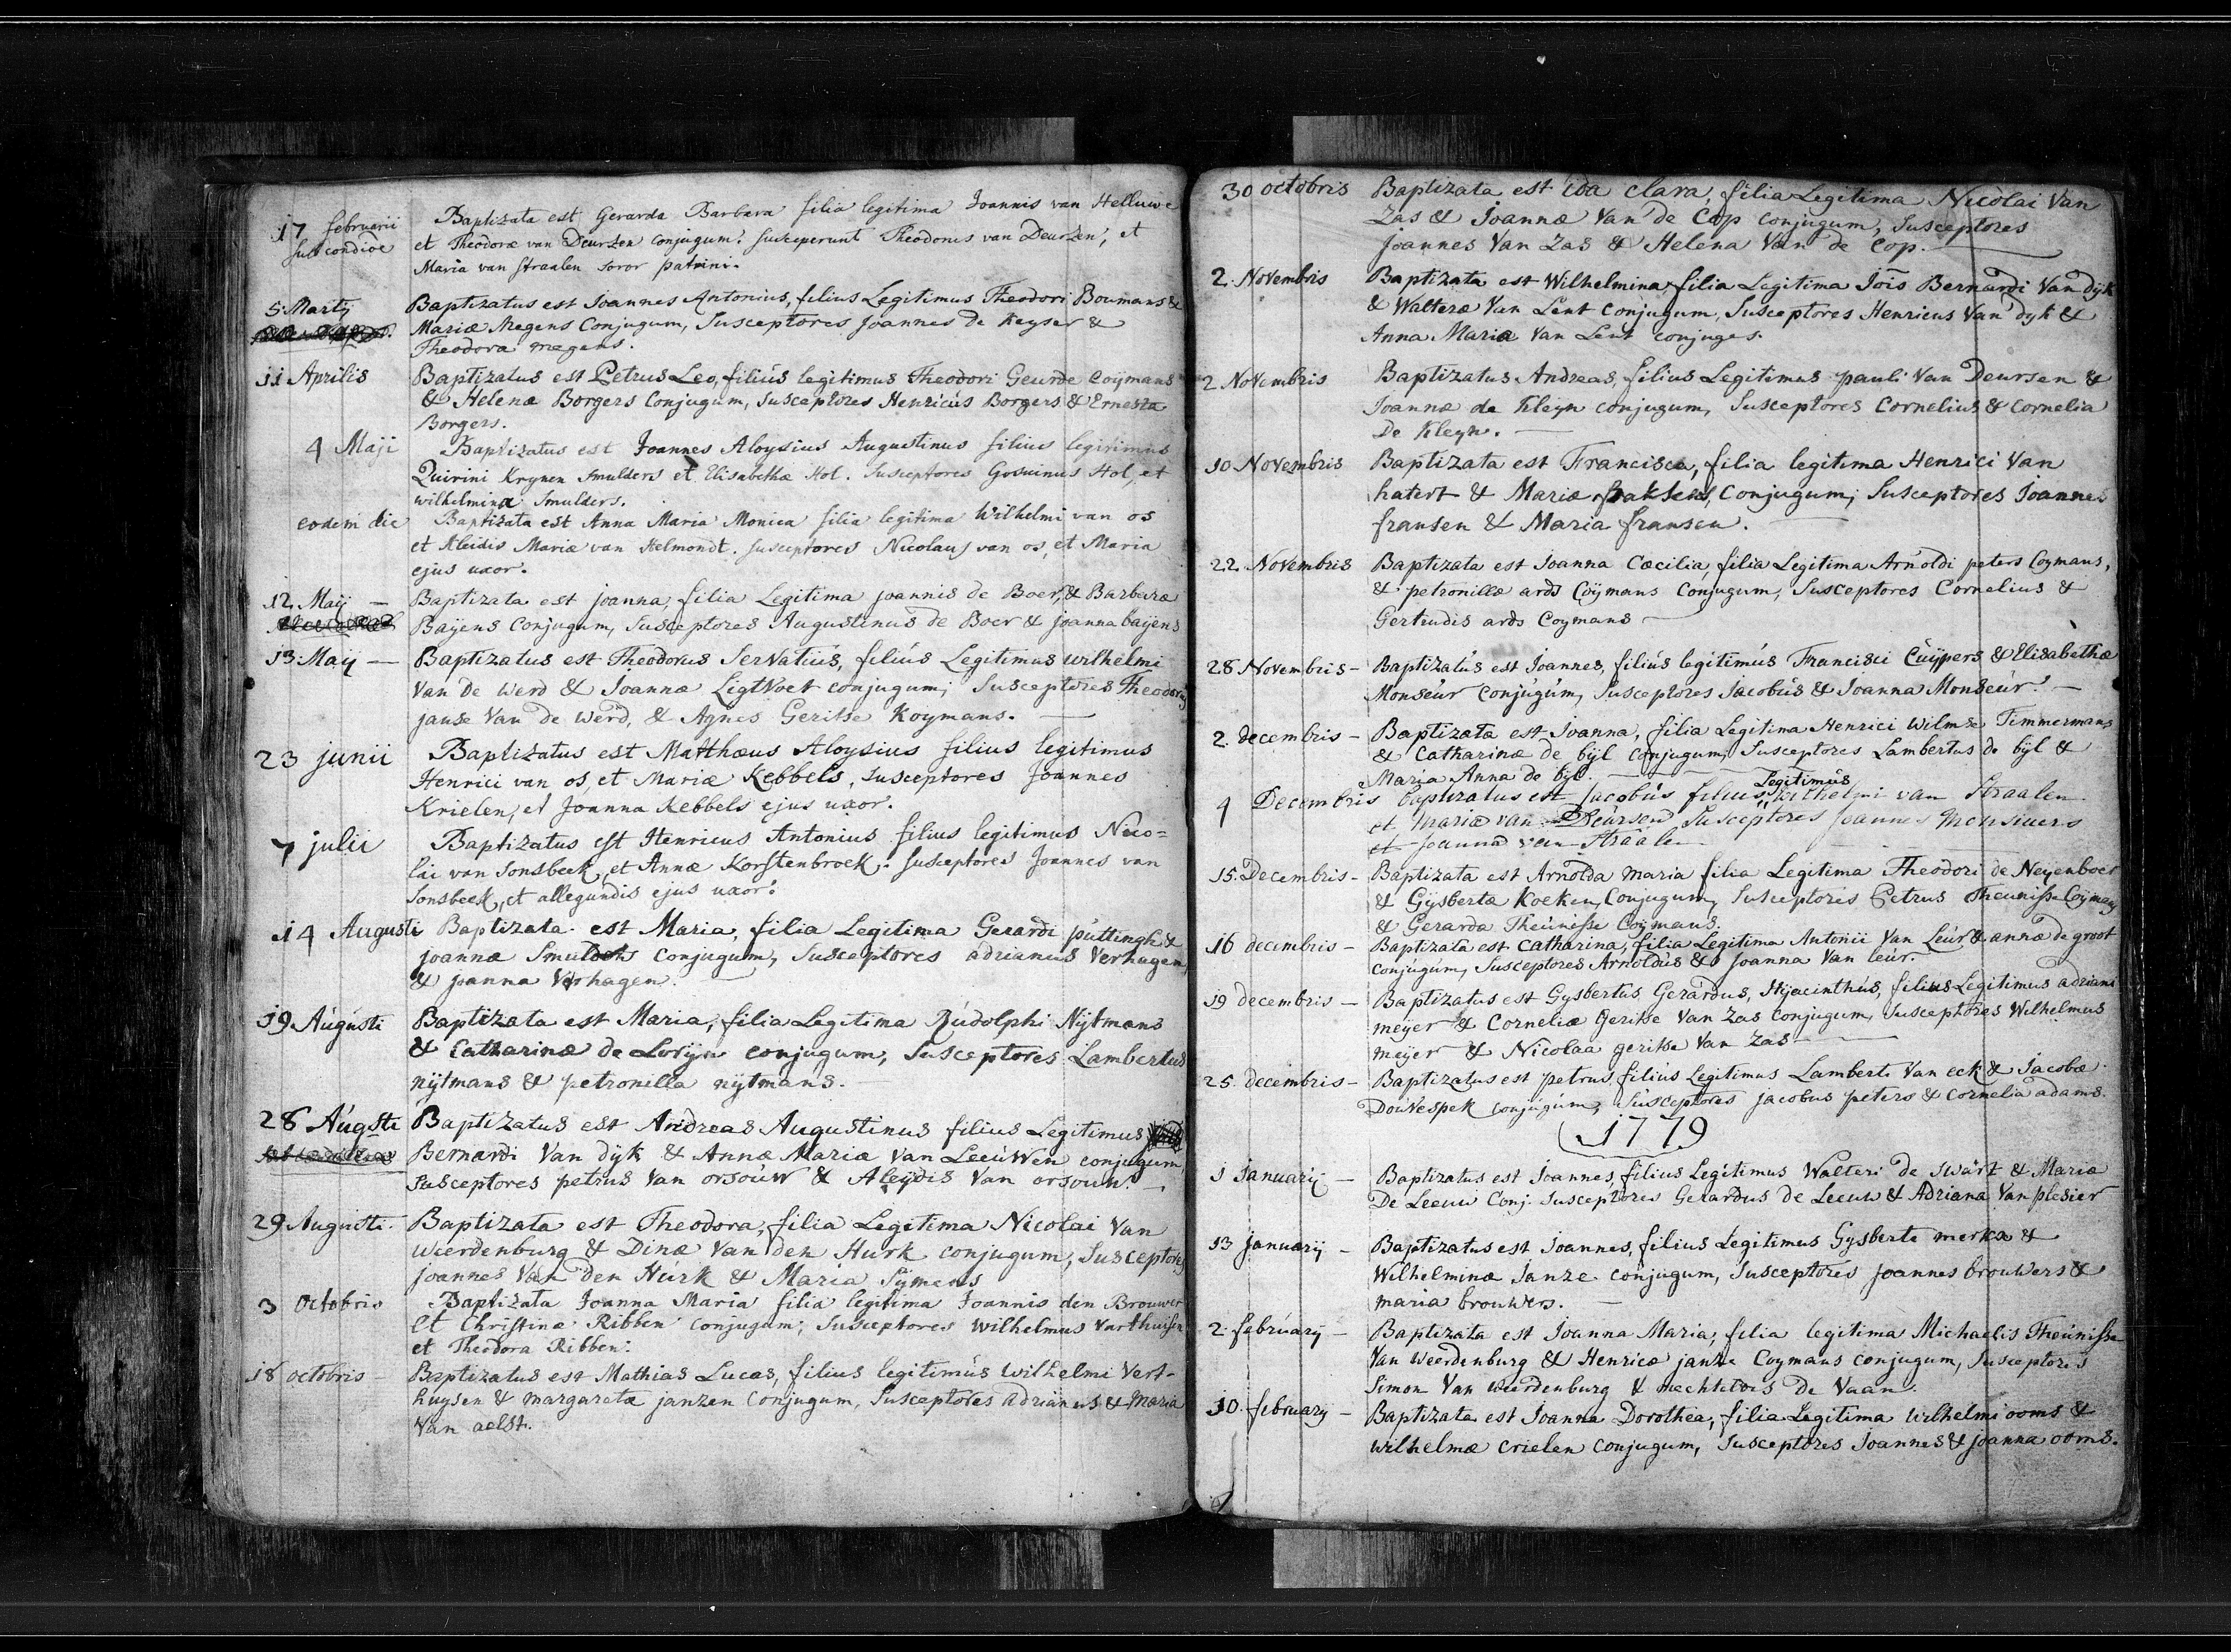 17 februarii Baptizata est Gerarda Barbara filia legitima Joannis van Helluwe
sub condioe et Theodoræ van Deurzen conjugum. susceperunt Theodorus van Deurzen, et
Maria van Straalen soror patrini.
5 Martij Baptizatus est Joannes Antonius, filius Legitimus Theodori Boumans &
Mariæ Megens Conjugum, Susceptores Joannes de Keyser &
Theodora megens.
11 Aprilis Baptizatus est Petrus Leo, filiús legitimus Theodori Geurde Coÿmans
& Helenæ Borgers Conjugum, Susceptores Henricús Borgers & Ernesta
Borgers.
4 Maji Baptizatus est Joannes Aloysius Augustinus filius legitimus
Quirini Krynen Smulders et Elisabethæ Hol. Susceptores Gosuinus Hol, et
wilhelmina Smulders.
eodem die Baptizata est Anna Maria Monica filia legitima Wilhelmi van os
et Aleidis Mariæ van Helmondt. susceptores Nicolaus van os, et Maria
ejus uxor.
12 Maij — Baptizata est joanna, filia Legitima joannis de Boer, & Barbaræ
Baÿens Conjugum, Susceptores Augustinus de Boer & joanna baÿens
13 Maij — Baptizatus est Theodorus Servatiús, filiús Legitimus wilhelmi
Van de werd & Joannæ Ligtvoet conjugum; Susceptores Theodorus
janse Van de werd, & Agnes Geritse Koymans. —
23 junii Baptizatus est Matthæus Aloysius filius legitimus
Henrici van os, et Mariæ Kebbels, susceptores Joannes
Krielen, et Joanna Kebbels ejus uxor.
7 julii Baptizatus est Henricus Antonius filius legitimus Nico=
lai van Sonsbeek, et Annæ Korstenbroek. susceptores Joannes van
Sonsbeek, et allegundis ejus uxor.
14 Augusti Baptizata est Maria, filia Legitima Gerardi púttingh &
joannæ Smulders Conjugum, Susceptores adrianus Verhagen
& joanna Verhagen. —
19 Aúgústi Baptizata est Maria, filia Legitima Rúdolphi Nijtmans
& Catharinæ de Lorijn conjugum, Susceptores Lambertus
nijtmans & petronilla nijtmans.
28 Aúgsti Baptizatus est Andreas Augustinus filius Legitimus
Bernardi Van dijk & Annæ Mariæ van Leeúwen conjugum
Susceptores petrus Van orsoúw & Aleijdis Van orsouw. —
29 Augusti. Baptizata est Theodora, filia Legitima Nicolai Van
weerdenburg & Dinæ Van den Hurk conjugum, Susceptores
joannes Van den Húrk & Maria Sijmens
3 Octobris Baptizata Joanna Maria filia legitima Joannis den Brouwer
et Christinæ Ribben conjugum; Susceptores Wilhelmus Varthuisen
et Theodora Ribben.
18 octobris — Baptizatus est Mathias Lucas, filius legitimús wilhelmi Vert-
huysen & margaretæ janzen Conjugum, Susceptores adrianus & maria
Van aelst.
30 octobris Baptizata est ida Clara, filia Legitima Nicolai Van
Zas & Joannæ Van de Cop conjugum, Susceptores
Joannes Van Zas & Helena Van de Cop. —
2. Novembris Baptizata est Wilhelmina, filia Legitima Jois Bernardi Van dijk
& Walteræ Van Lent conjugum, Susceptores Henricus Van dyk &
Anna Maria Van Lent conjuges.
2 Novembris Baptizatus Andreas, filius Legitimus pauli Van Deursen &
Joannæ de Kleyn conjugum, Susceptores Cornelius & Cornelia
De Kleyn. —
10 Novembris Baptizata est Francisca, filia legitima Henrici Van
hatert & Mariæ Conjugum; Susceptores Joannes
fransen & Maria fransen. —
22. Novembris Baptizata est Joanna Cæcilia, filia Legitima Arnoldi peters Coymans,
& petronillæ ards Coÿmans Conjugum, Susceptores Cornelius &
Gertrudis ards Coymans —
28 Novembris — Baptizatús est Joannes, filiús legitimús Francisci Cuÿpers & Elisabethæ
Monseúr Conjúgúm, Susceptores Jacobús & Joanna Monseúr. —
2. decembris — Baptizata est Joanna, filia Legitima Henrici Wilmse Timmermans
& Catharinæ de bijl conjugum, Susceptores Lambertus de bijl &
Maria Anna de bijl. —
Legitimús
4 Decembris baptizatus est jacobús filius wilhelmi van Straalen
et mariæ van Deúrsen Susceptores joannes Mensiners
et joanna van Straalen
15. Decembris — Baptizata est Arnolda maria filia Legitima Theodori de Neijenboer
& Gysbertæ Koeken, Conjugum, Susceptores Petrus Theunisse Coÿmans
& Gerarda Theúnisse Coÿmans.
16 decembris — Baptizata est Catharina, filia Legitima Antonii Van Leúr & annæ de groot
conjúgúm, Susceptores Arnoldús & joanna Van leúr.
19 decembris — Baptizatus est Gysbertus, Gerardus, Hyacinthús, filius Legitimus adriani
meijer & Corneliæ Geritse Van Zas Conjugum, Susceptores Wilhelmus
meijer & Nicolaa geritse Van Zas —
25. decembris — Baptizatus est petrus, filius Legitimus Lamberti Van eck & Jacobæ
Doúvespek conjúgúm, Súsceptores jacobus peters & cornelia adams.
1779
1 Januarij — Baptizatus est Joannes, filius Legitimus Walteri de Swart & Mariæ
De Leeuw Conj. Susceptores Gerardus de Leeuw & Adriana Van plesier
13 januarij — Baptizatus est Joannes, filius Legitimus Gysberti merkx &
Wilhelminæ Janze conjugum, Susceptores joannes brouwers &
maria brouwers. —
2. februarij — Baptizata est Joanna Maria, filia legitima Michaelis Theúnisse
Van Weerdenburg & Henricæ janze Coymans conjugum, Susceptores
Simon Van Weerdenburg & mechteldis de Vaan.
10. februarij — Baptizata est Joanna Dorothea, filia Legitima Wilhelmi ooms &
wilhelmæ crielen conjugum, Susceptores Joannes & joanna ooms.